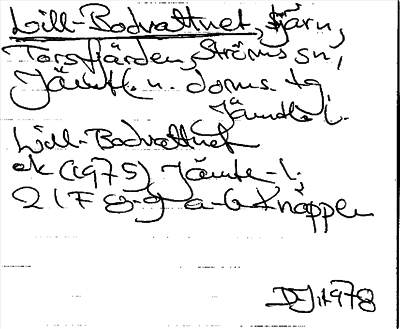 Lill-Bodvattnet, tjärn,
Torsfjärden, Ströms sn,
Jämtl. n. doms. tg,
Jämtl. l.
Lill-Bodvattnet
ek (1975) Jämtl. l.,
21F 8-9 a-b Knäppen
DEJ 1978